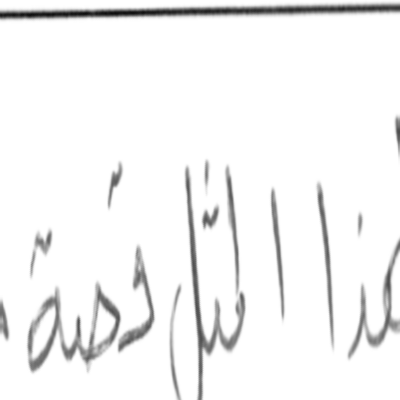 لهذا المثل قصة